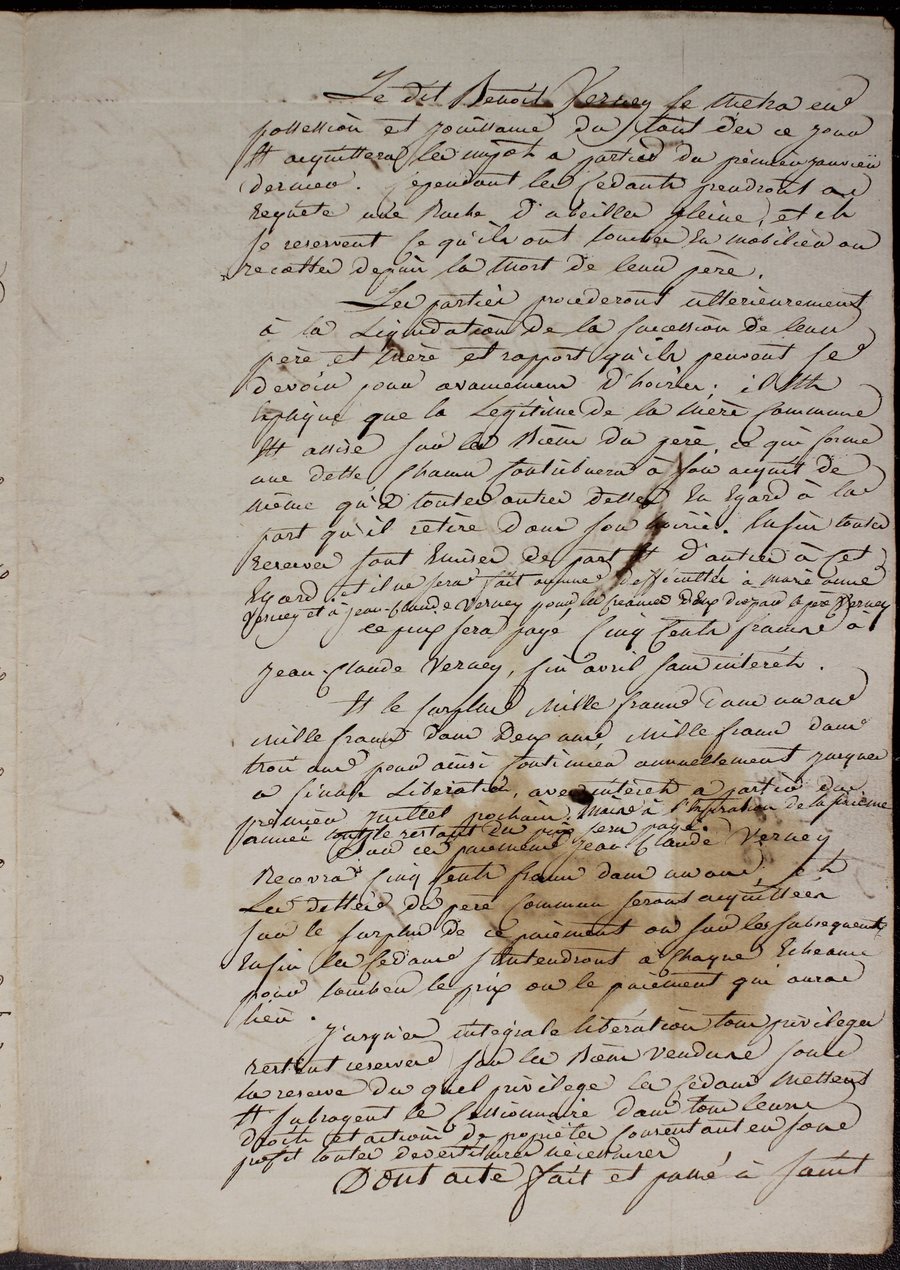 Le dit Benoit Verney se mettra en
possession et jouissance du tout des ce jour
et acquittera les impots a partir du premier janvier
dernier. Cependant les cedants prendront au
requete une Ruche d'abeilles pleine, et ils
se reservent ce qu'ils ont touché en mobilier ou
recoltes depuis la mort de leur père.
Les parties procederont ulterieurement
à la Liquidation de la succession de leur
père et mère et rapport qu'ils peuvent se
devoir pour avancement d'hoirie. il est
expliqué que la Legitime de la mère commune
est assise sur les Biens du père, ce qui forme
une dette chacun contribuera à son acquit de
même qu'à toutes autres dettes en egard à la
part qu'il retire dans son hoirie. Enfin toutes
reserves sont Emises de part et d'autres à cet
Egard et il ne sera fait aucune difficulté à marie anne
Verney et à jean-Claude Verney pour les creances dues par le père Verney
Le prix sera payé cinq cents francs à
Jean-Claude Verney, fin avril sans intérêts.
Et le surplus mille francs dans un an
mille francs dans Deux ans, mille francs dans
trois ans pour ainsi continuer annuellement jusques
a finale Liberation, avec intérêt a partir du
premier juillet prochain, mais à l'expiration de la
année tout le restant du prix sera payé.
Sur ces paiements jean Claude Verney
Recevra cinq cents francs dans un an, et
Les dettes du père commun seront acquittées
sur le surplus de ce paiement ou sur les subsequents
Enfin les cedants s'entendront à chaque Echeance
pour toucher le prix ou le paiement qui aura
lieu.
Jusqu'en integrale libération tous privileges
restent reservés sur les Biens vendus sous
la reserve du quel privilege les cedants mettent
Et subrogent le Cessionnaire dans tous leurs
droits et actions de propriété consentant en son
profit toutes devestitures nécessaires
Dont acte fait et passé à saint